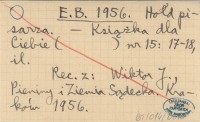 E.B. 1956. Hołd pi-
sarza. — Książka dla
Ciebie ( ) nr 15: 17-18,
il.
Rec. z: Wiktor J.,
Pieniny i Ziemia Sądecka. Kra-
ków 1956.